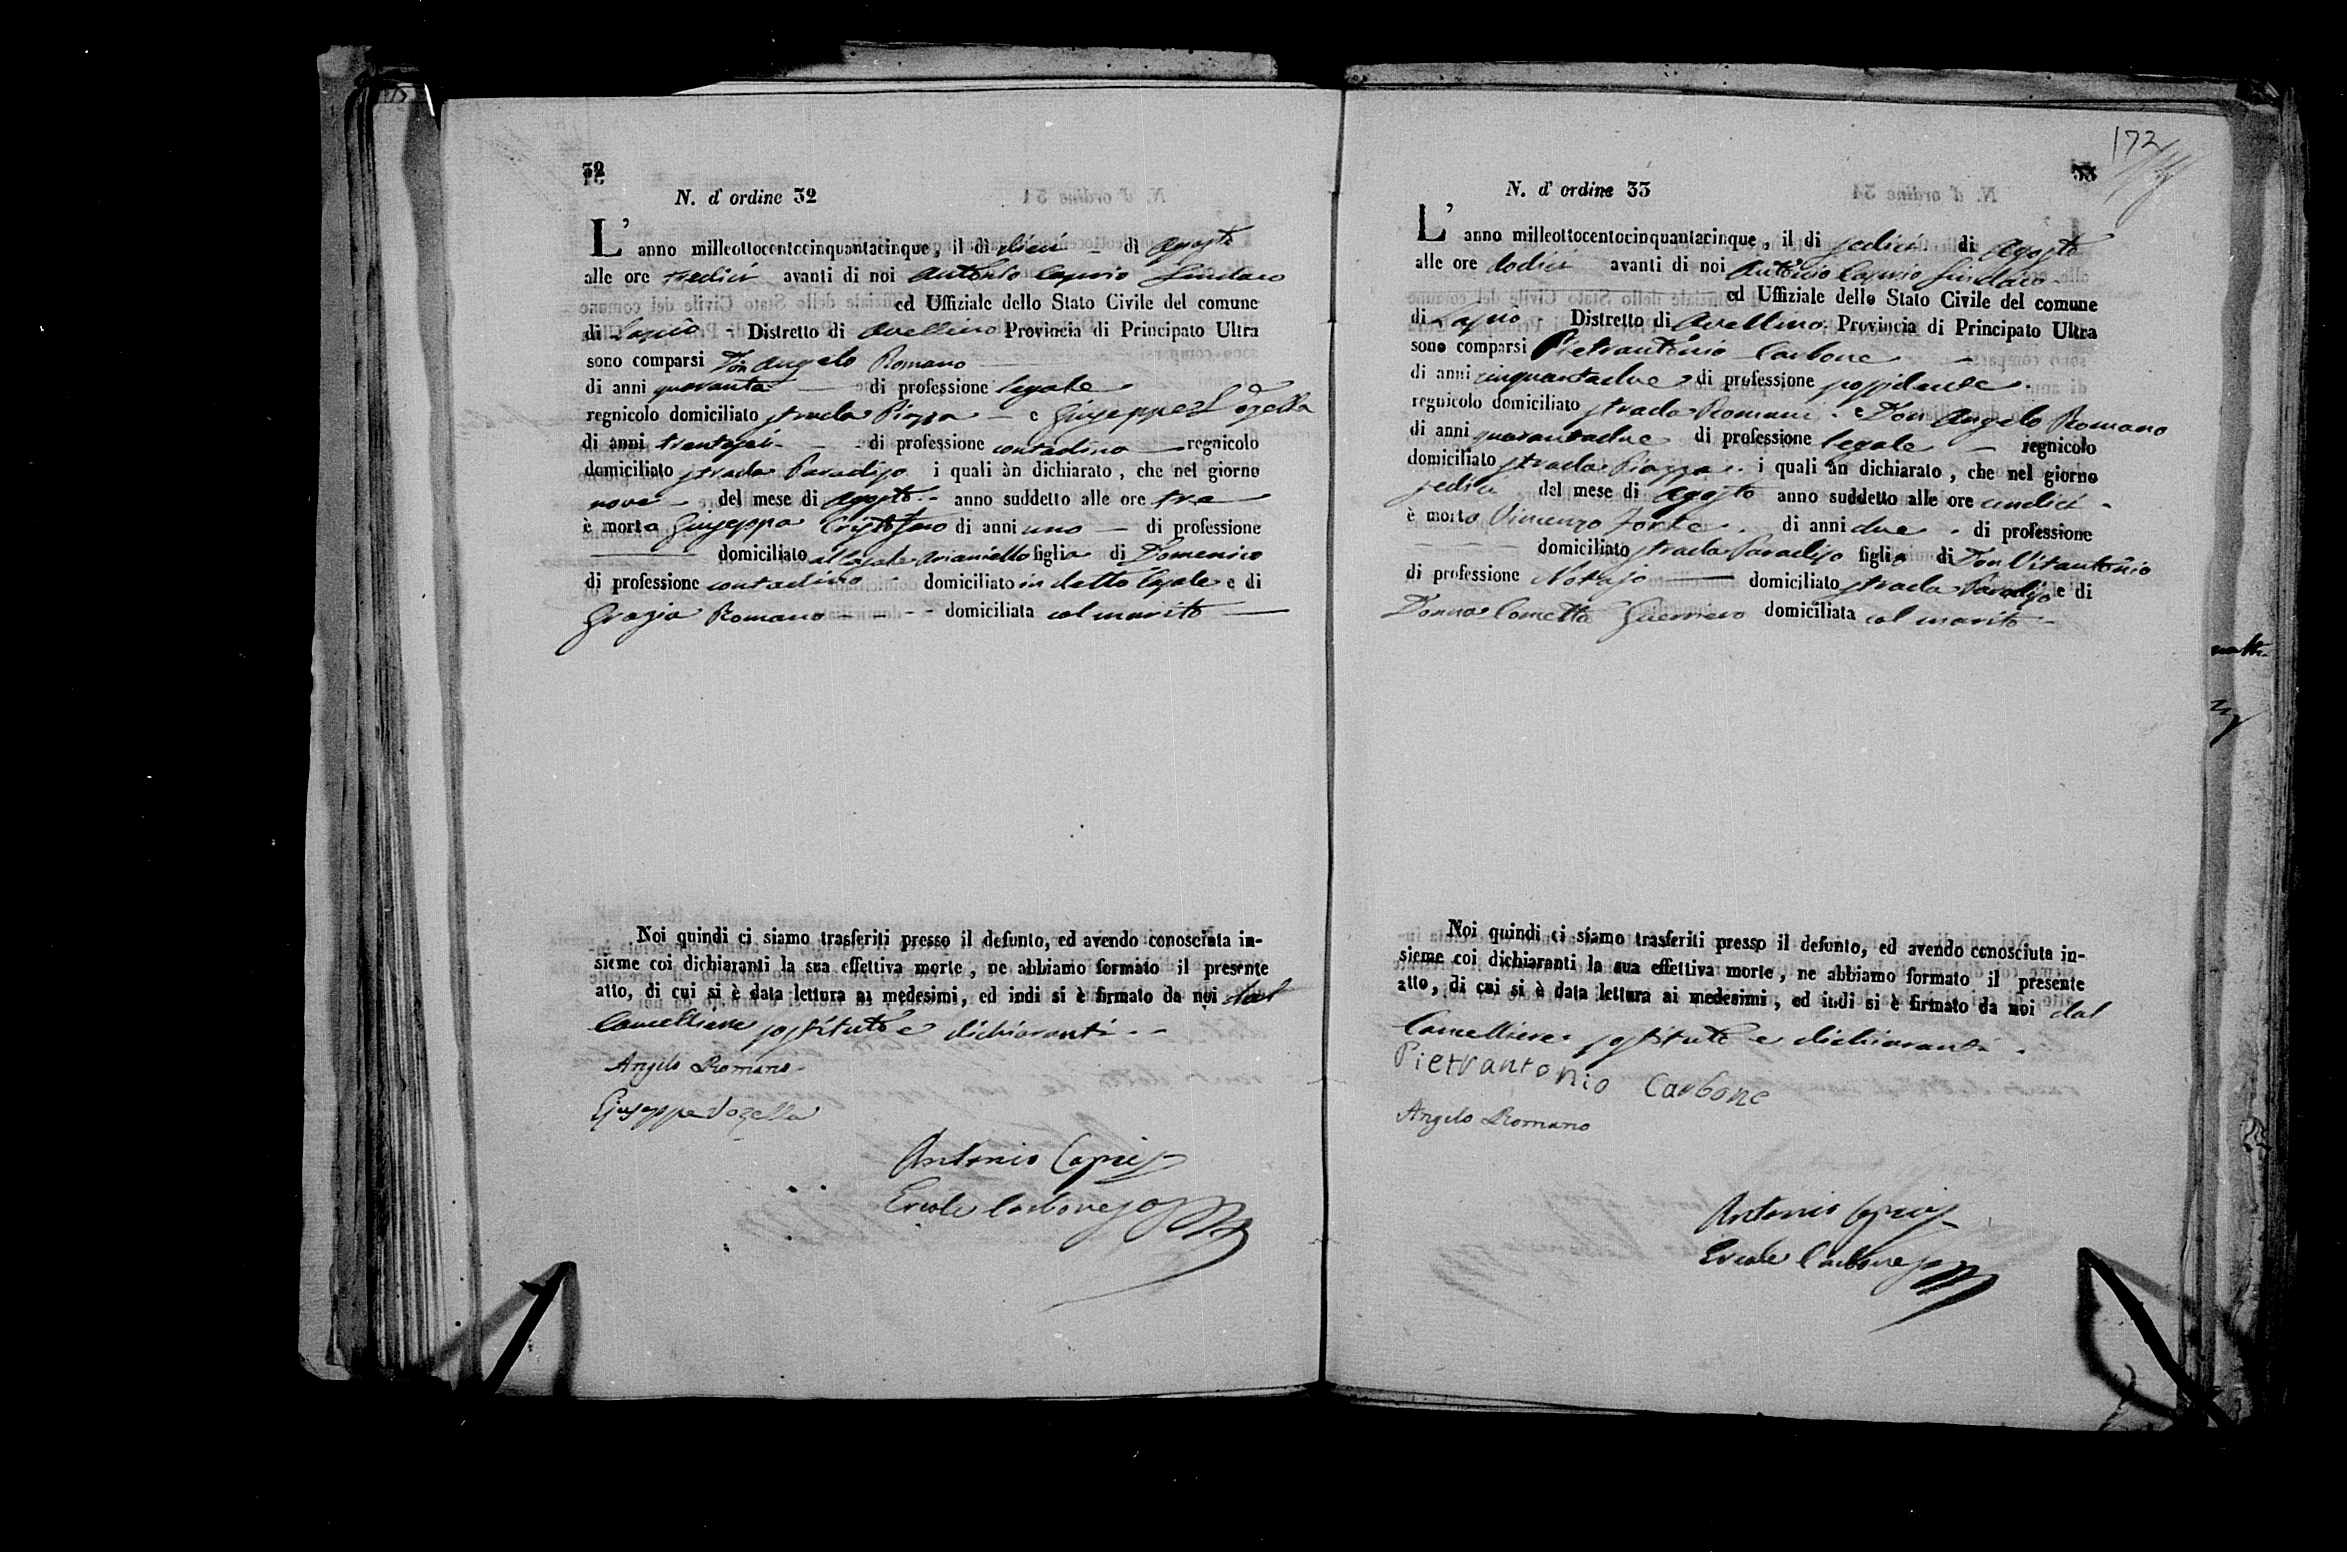 32
N. d' ordine 32
L' anno milleottocentocinquantacinque, il dì dieci di Agosto
alle ore tredici avanti di noi Antonio Caprio Sindaco
ed Uffiziale dello Stato Civile del comune
di Lapio Distretto di Avellino Provincia di Principato Ultra
sono comparsi Don Angelo Romano
di anni quaranta di professione legale
regnicolo domiciliato strada Piazza e Giuseppe
di anni trentasei di professione contadino regnicolo
domiciliato strada Paradiso i quali àn dichiarato, che nel giorno
nove del mese di Agosto anno suddetto alle ore tre
è morta Giuseppa Cristofaro di anni uno di professione
domiciliato al Casale Marianiello figlia di Domenico
di professione contadino domiciliato in detto Casale e di
Grazia Romano domiciliata col marito
Noi quindi ci siamo trasferiti presso il defunto, ed avendo conosciuta in-
sieme coi dichiaranti la sua effettiva morte, ne abbiamo formato il presente
atto, di cui si è data lettura ai medesimi, ed indi si è firmato da noi dal
Cancelliere sostituto e dichiaranti
Angelo Romano
Giuseppe
Antonio Caprio
Ercole Carbone
172
33
N. d' ordine 33
L' anno milleottocentocinquantacinque, il di sedici di Agosto
alle ore dodici avanti di noi Antonio Caprio Sindaco
ed Uffiziale dello Stato Civile del comune
di Lapio Distretto di Avellino Provincia di Principato Ultra
sono comparsi Pietrantonio Carbone
di anni cinquantadue di professione possidente
regnicolo domiciliato strada Romani e Don Angelo Romano
di anni quarantadue di professione legale regnicolo
domiciliato strada Piazza i quali àn dichiarato, che nel giorno
sedici del mese di Agosto anno suddetto alle ore undici
è morto Vincenzo Forte di anni due di professione
domiciliato strada Paradiso figlio di Don Vitantonio
di professione Notajo domiciliato strada Paradiso e di
Donna Cometta Guerriero domiciliata col marito
Noi quindi ci siamo trasferiti presso il defunto, ed avendo conosciuta in-
sieme coi dichiaranti la sua effettiva morte, ne abbiamo formato il presente
atto, di cui si è data lettura ai medesimi, ed indi si è firmato da noi dal
Cancelliere sostituto e dichiaranti
Pietrantonio Carbone
Angelo Romano
Antonio Caprio
Ercole Carbone